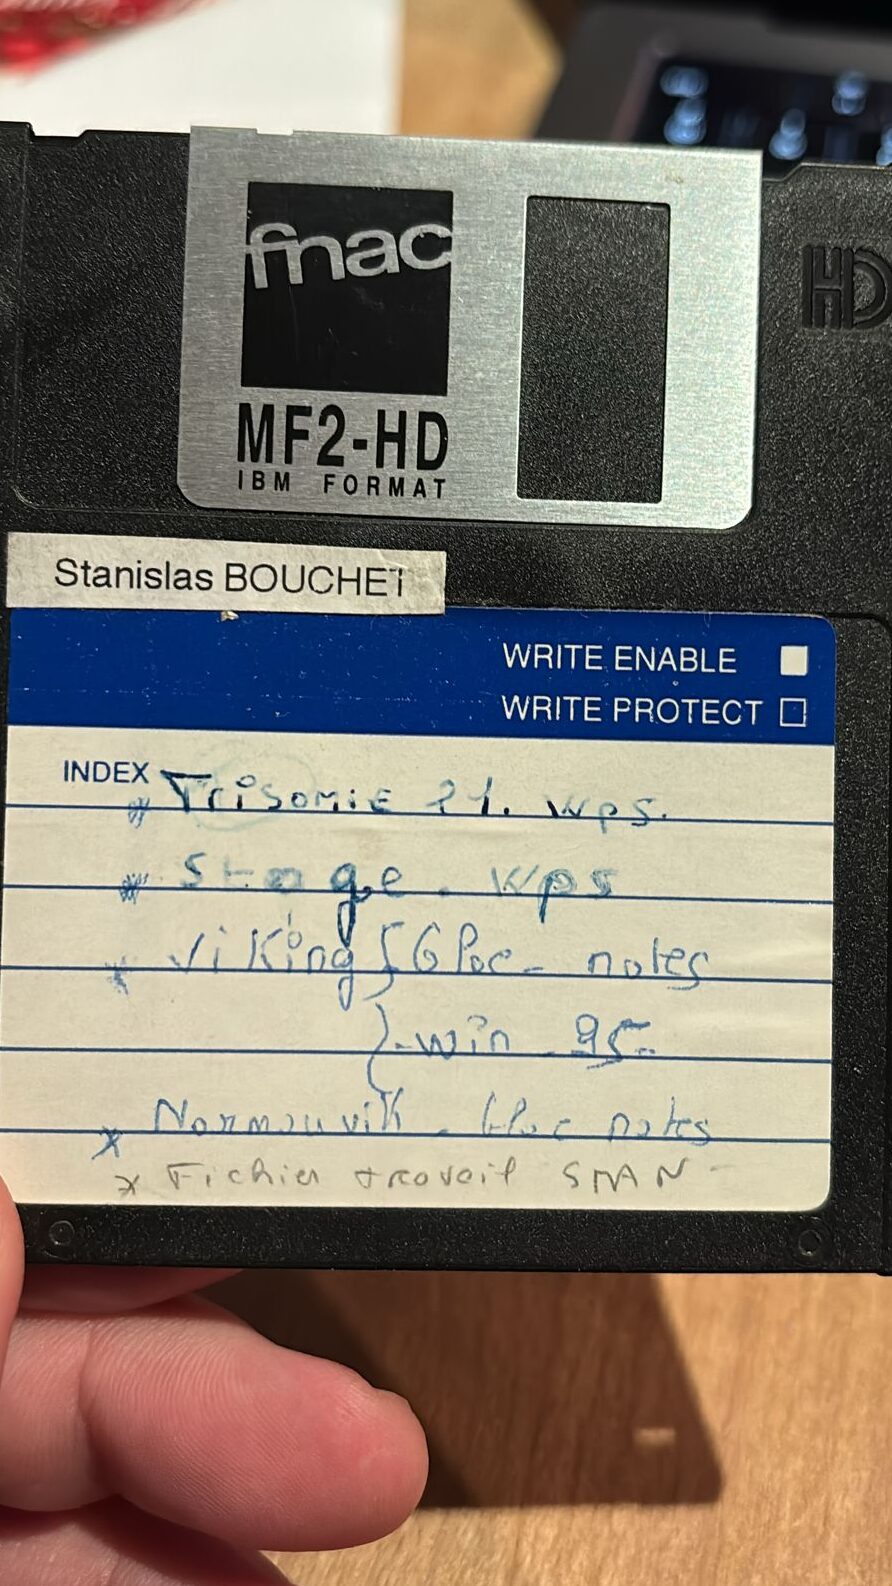 fnac
HD
MF2-HD
IBM FORMAT
Stanislas BOUCHET
WRITE ENABLE
WRITE PROTECT
INDEX
* Trisomie 21. wps.
* Stage. wps
* Viking { Bloc- notes
}-win 95-
* Normanvik - bloc notes
* Fichier travail STAN -